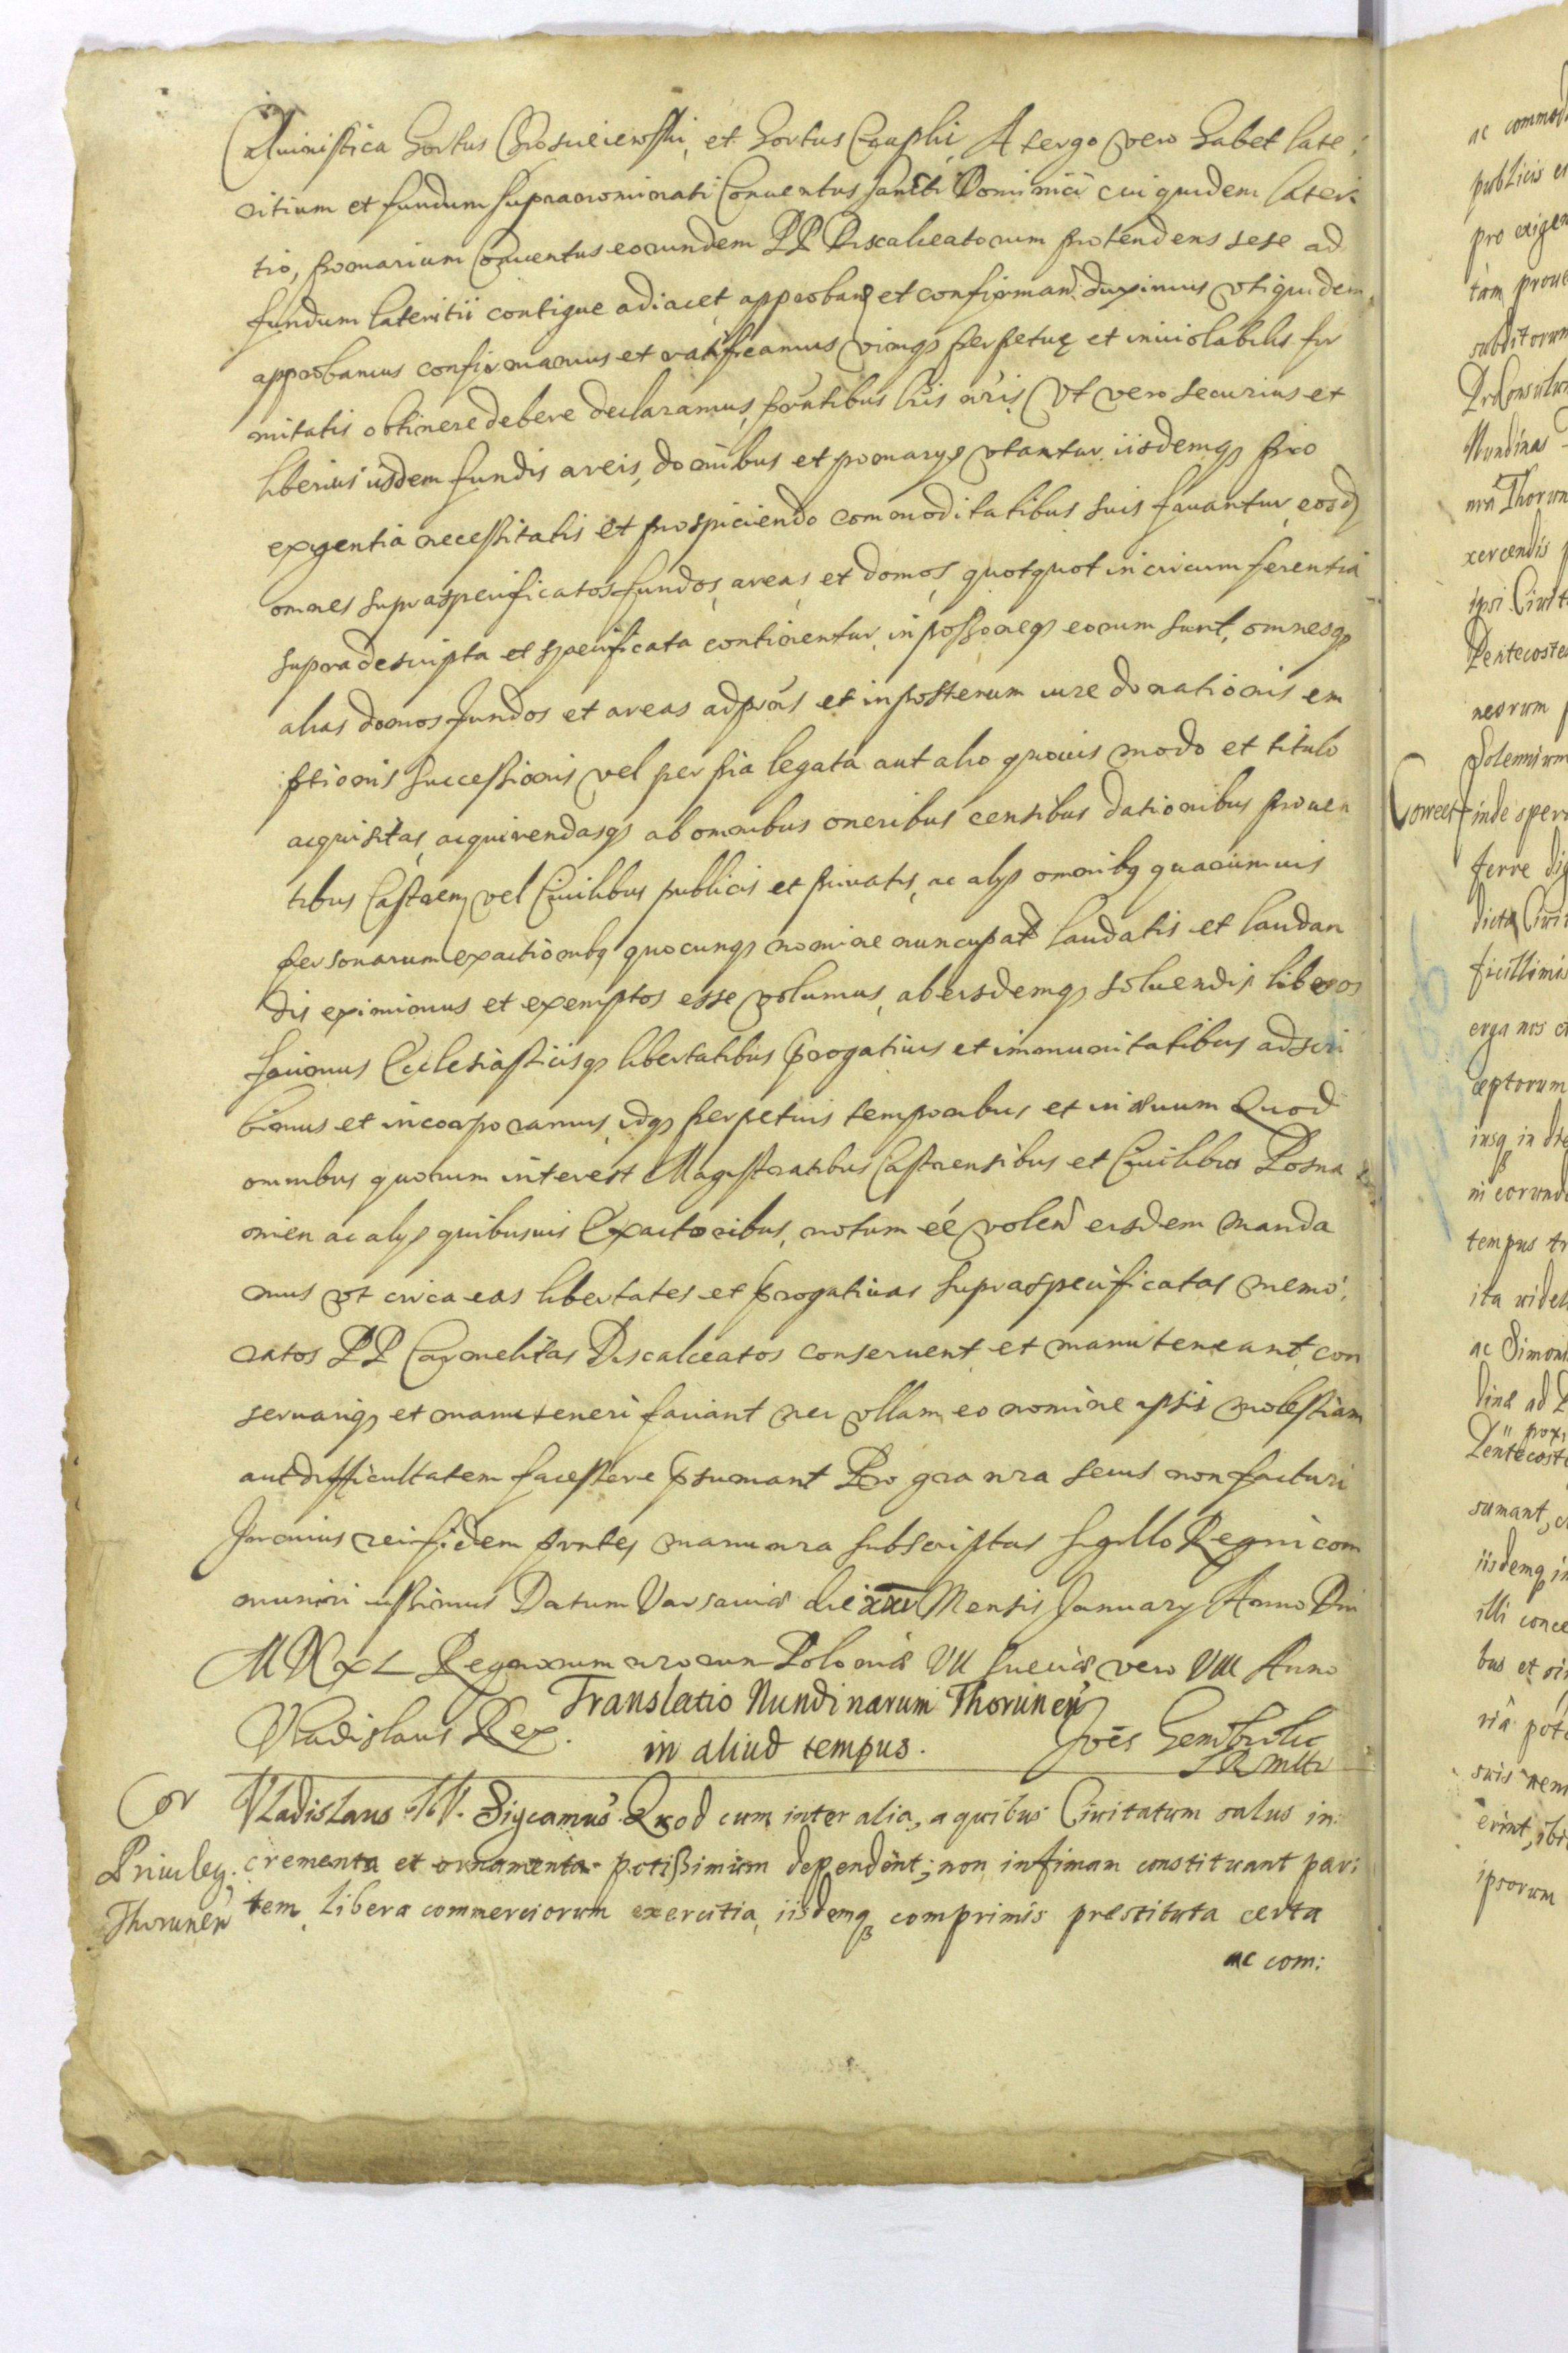 Caluinistica Hortus et Hortus A tergo vero habet late:
ritium et fundum supranominati Conuentus Sancti Dominici cui quidem lateri
tio, pomarium Conuentus eorundem PP Discalceatorum protendens sese ad
fundum lateritii contigue adiacet, approband et confirmand duximus vti quidem
approbamus confirmamus et ratificamus vimq perpetuę et inuiolabilis fir
mitatis obtinere debere declaramus, pntibus lris nris, Vt vero securius et
liberius iisdem fundis areis, domibus et pomarys vtantur iisdemq pro
exigentia necessitatis et prospiciendo commoditatibus suis fruantur, eosd
omnes supraspecificatos fundos, areas, et domos, quotquot in circumferentia
supra descripta et specificata continentur, in possoneq eorum sunt, omnesq
alias domos fundos et areas ad prns et in posterum iure donationis em
ptionis successionis vel per pia legata aut alio quouis modo et titulo
acquisitas, acquirendasq ab omnibus oneribus censibus dationibus prouen
tibus Castren vel Ciuilibus publicis et priuatis, ac alys omnibq quarumuis
personarum exactionibq quocunq nomine nuncupat laudatis et laudan
dis eximimus et exemptos esse volumus, ab eisdemq soluendis liberos
facimus Ecclesiasticisq libertatibus progatiuis et immunitatibus adscri
bimus et incorporamus, idq perpetuis temporibus et in æuum Quod
omnibus quorum interest Magistratibus Castrensibus et Ciuilibus Posna
nien ac alys quibusuis Exactoribus, notum éé volen eisdem manda
mus vt circa eas libertates et progatiuas supraspecificatas memo:
ratos PP Carmelitas Discalceatos conseruent et manuteneant, con
seruariq et manuteneri faciant nec vllam eo nomine ipsis molestiam
aut difficultatem facessere psumant Pro gra nra secus non facturi
In cuius rei fidem pntes manu nra subscriptas sigillo Regni com
muniri iussimus Datum Varsauiæ die xxv Mensis January Anno Dni
MDCxL Regnorum nrorum Poloniæ VII Sueciæ vero VIII Anno
Vladislaus Rex.
Translatio Nundinarum Thorunen
in aliud tempus.
Joēs Gembicki
Cor
Priuileg.
Thorunen
Vladislaus IV. Sigcamus Quod cum inter alia, a quibus Ciuitatum salus in:
crementa et ornamenta potißimum dependent; non infimam constituant par:
tem, libera commerciorum exercitia, iisdemq comprimis præstituta certa
ac com:
ac commod
publicis
pro exigen
tam
subditorum
ProConsulum
Mundinas
nra Thorun
xercendis
ipsi Ciuit
Pentecosten
neorum
Solennium
Correct
inde sper
ferre
dicta Ciui
ficillimis
erga nos
ceptorum
iusq in
ni eorund
tempus
ita videl
ac Simonis
dinæ ad
Pentecost
sumant,
iisdemq in
illi conce
bus et
ria
suis nem
erint, ibi
ipsorum